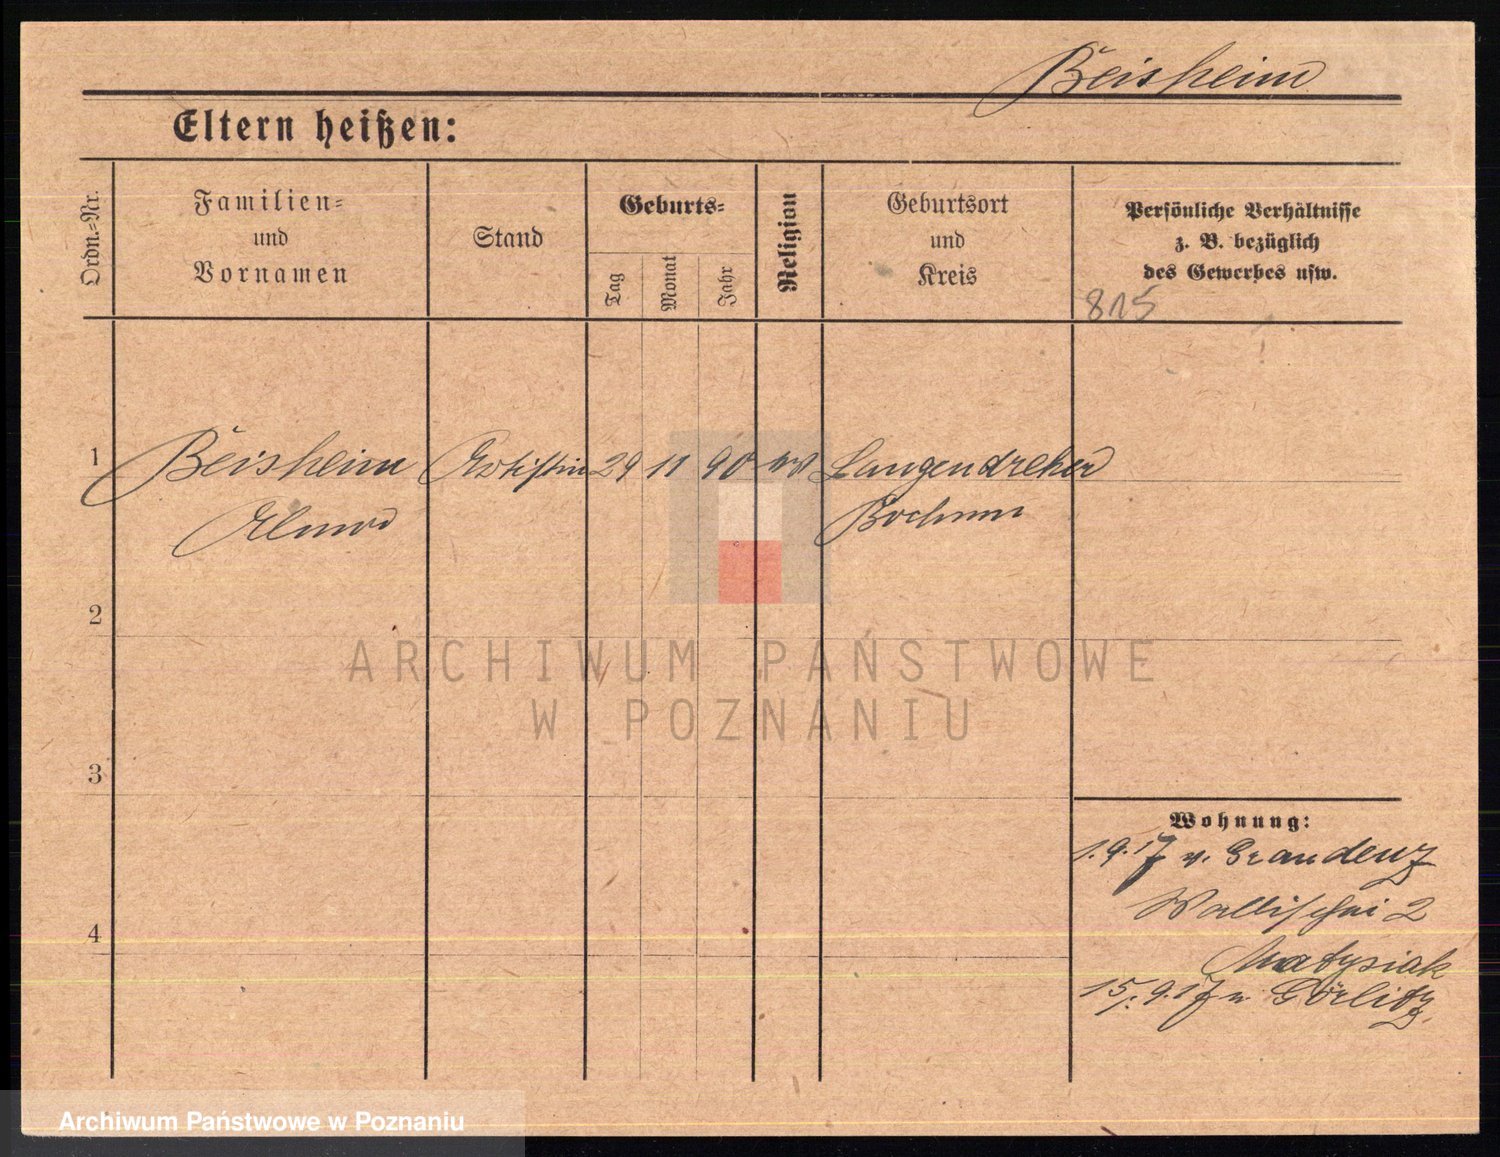 Beisheim
Eltern heißen:
Ordn.-Nr.
Familien-
und
Vornamen
Stand
Geburts-
Tag
Monat
Jahr
Religion
Geburtsort
und
Kreis
Persönliche Verhältnisse
z. B. bezüglich
des Gewerbes usw.
815
1
Beisheim Artistin 29 11 90 Langendreher
Bochum
2
ARCHIWUM PAŃSTWOWE
W POZNANIU
3
Wohnung:
1.9.17 v. Graudenz
Wallischei 2
Matysiak
4
15/.9.17 n Görlitz.
Archiwum Państwowe w Poznaniu